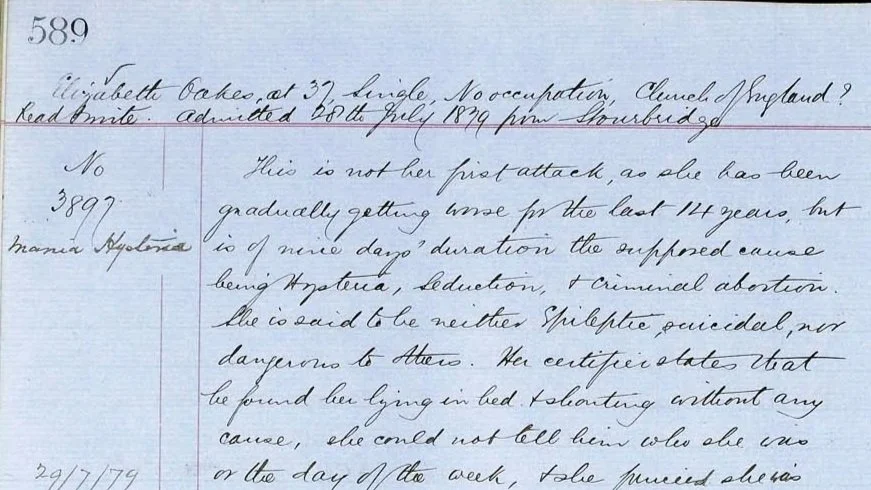 589
Elizabeth Oakes, æt 37, Single, No occupation, Church of England?
Read & write. Admitted 28th July 1879 from Stourbridge
No
3897
Mania Hysteria
This is not her first attack, as she has been
gradually getting worse for the last 14 years, but
is of nine days' duration the supposed cause
being Hysteria, Seduction, & criminal abortion.
She is said to be neither Epileptic, suicidal, nor
dangerous to others. Her certifier states that
he found her lying in bed & shouting without any
cause, she could not tell him who she was
29/7/79
or the day of the week, & she fancied she was